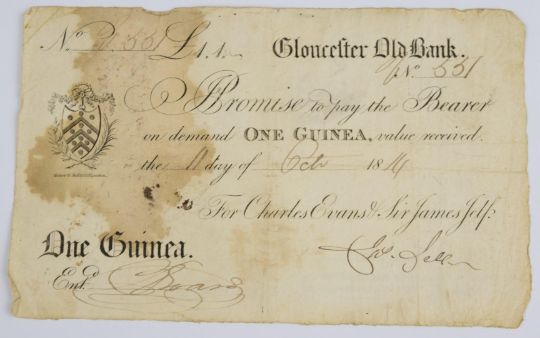 No 331 £1.1. Gloucester Old Bank.
No 331
I Promise to pay the Bearer
on demand ONE GUINEA, value received.
the day of Octr 1814
For Charles Evans & Sir James Jelf
One Guinea.
Entd